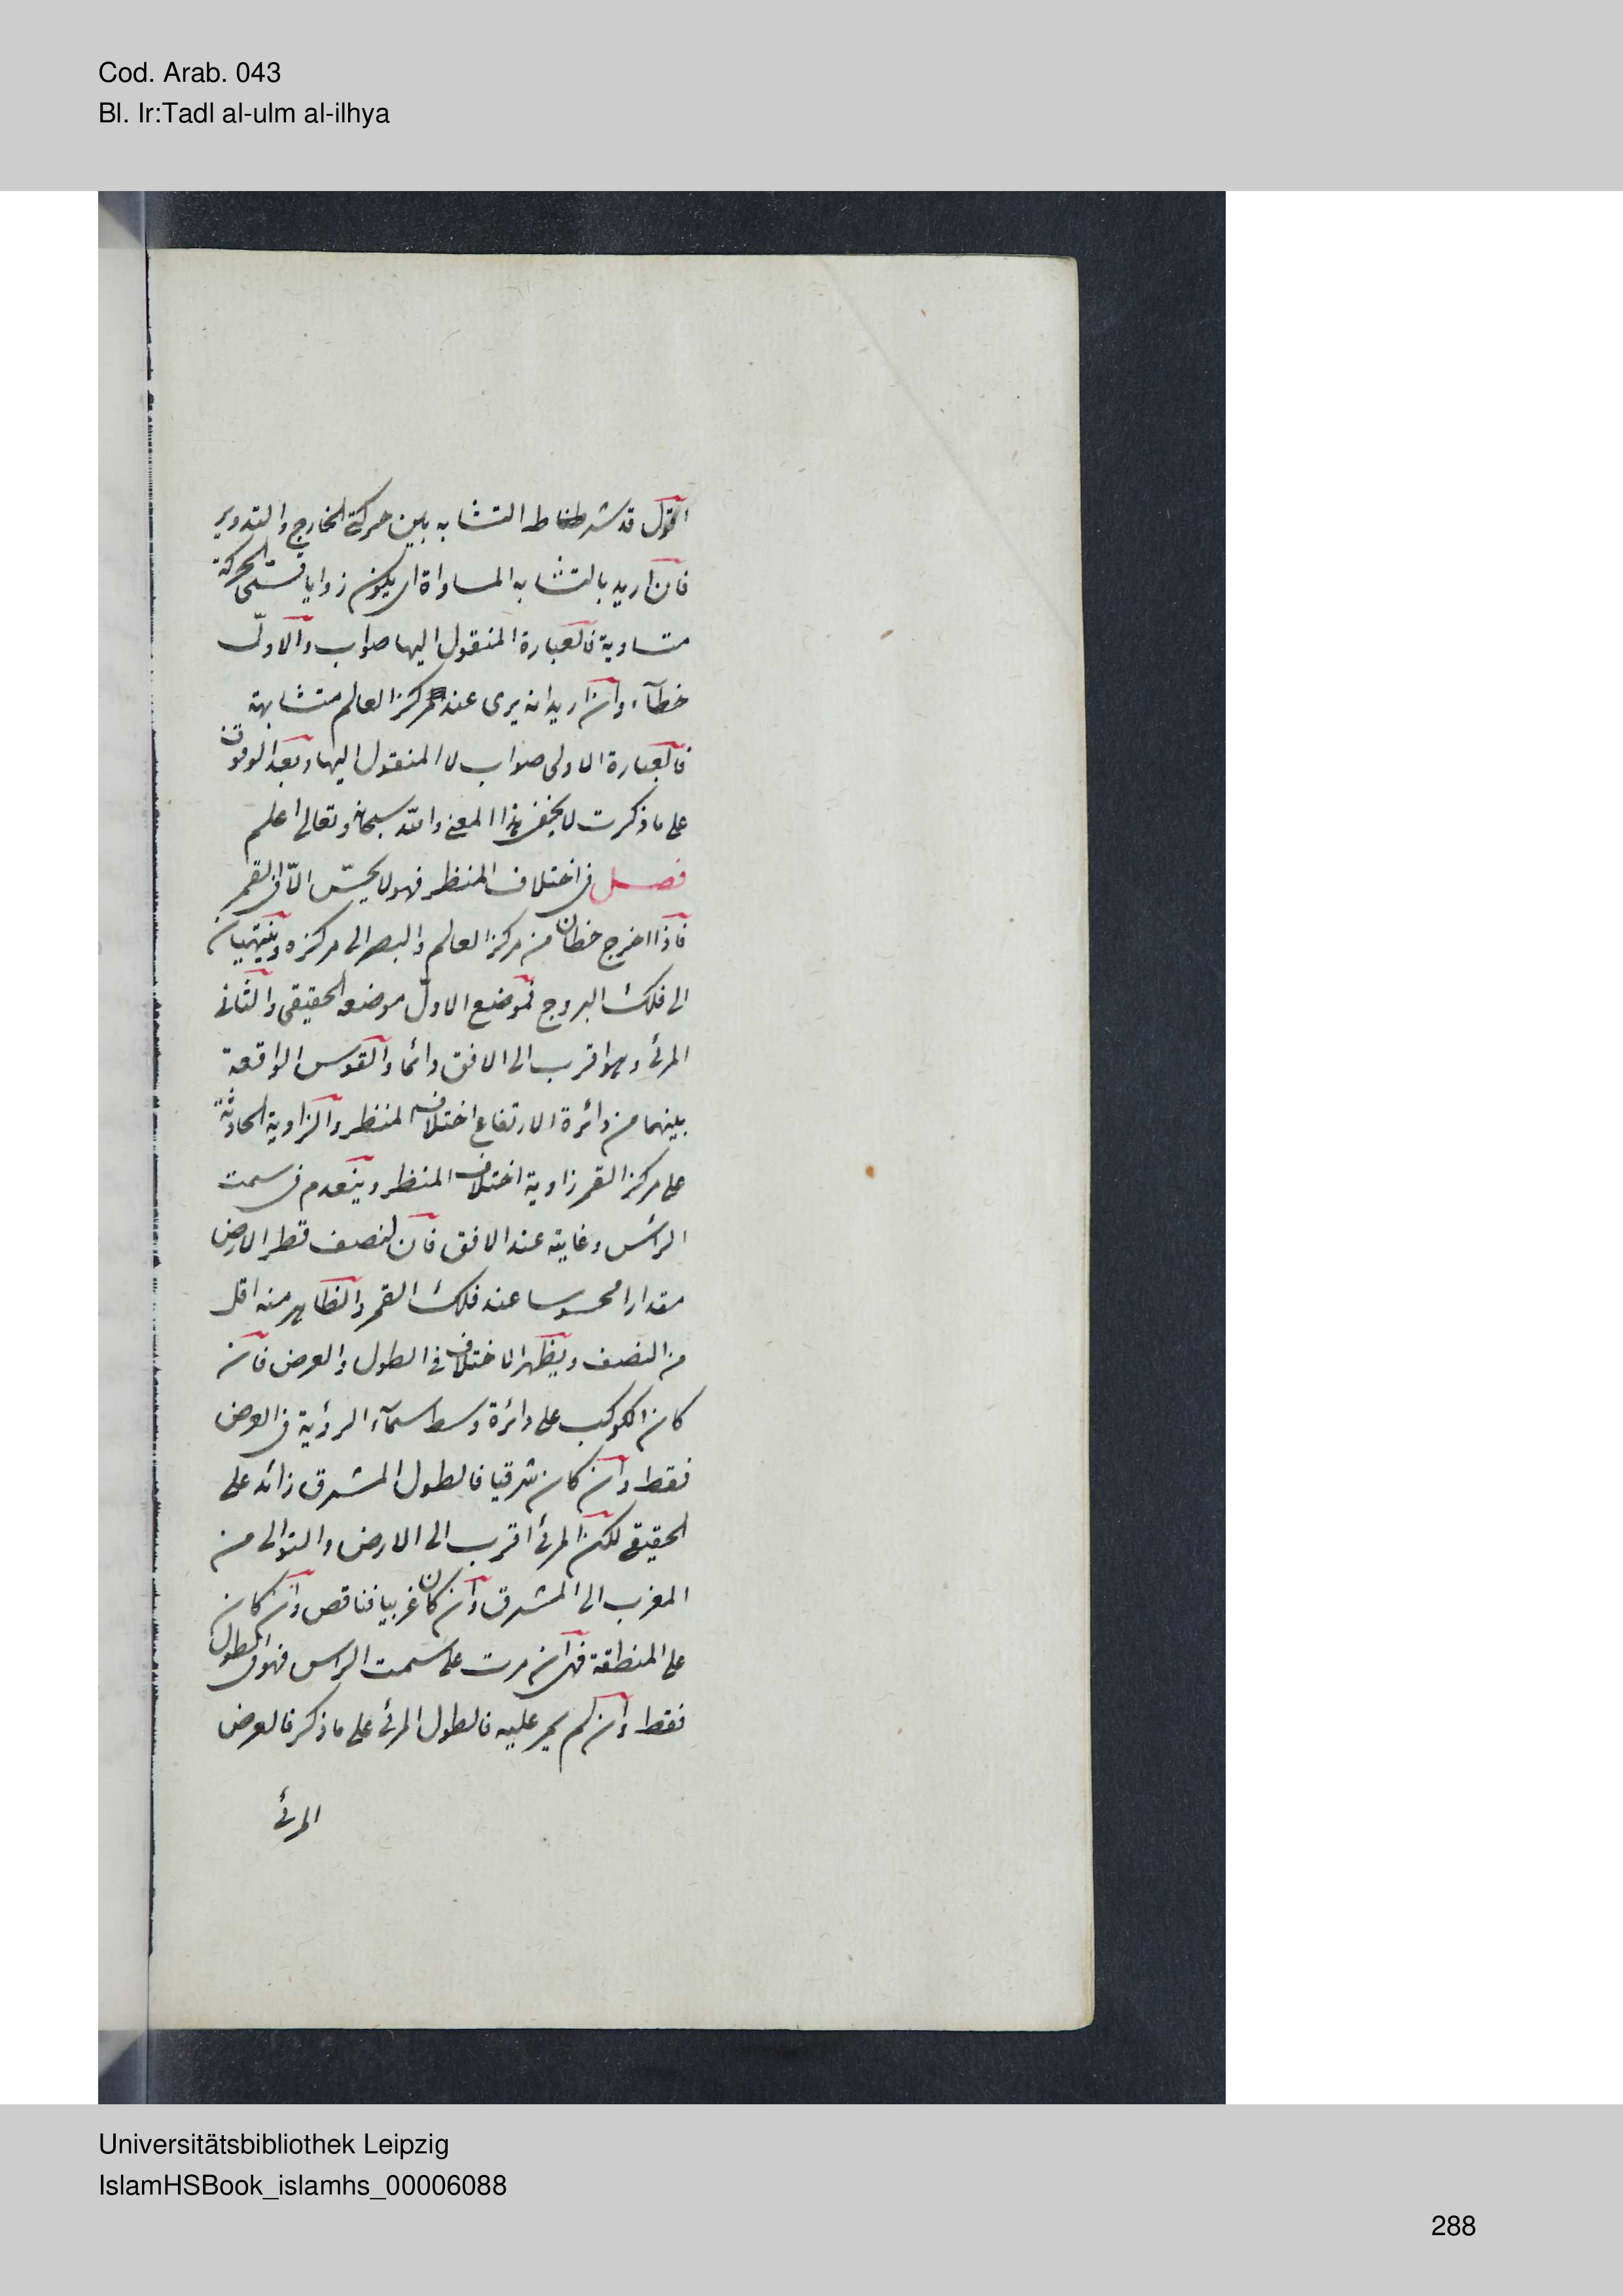 Cod. Arab. 043
Bl. Ir:Tadl al-ulm al-ilhya
اقول قد شرط التشابه بين حركة الخارج والتدوير
فان اريد بالتشابه المساواة اى يكون زوايا الحركة
متساوية فالعبارة المنقول اليها صواب والاولى
خطآء وان اريد انه يرى عند مركز العالم متشابهة
فالعبارة الاولى صواب لا المنقول اليها وبعد الوقوف
على ما ذكرت لا يخفى هذا المعنى والله سبحانه وتعالى اعلم
فصل فى اختلاف المنظر فهو لا يحسّ الّا فى القمر
فاذا اخرج خطان من مركز العالم والبصر الى مركزه وينتهيان
الى فلك البروج فموضع الاول موضعه الحقيقى والثانى
المرئى وهو اقرب الى الافق دائما والقوس الواقعة
بينهما من دائرة الارتفاع اختلاف المنظر والزاوية الحادثة
على مركز القمر زاوية اختلاف المنظر وينعدم فى سمت
الرأس وغايته عند الافق فان لنصف قطر الارض
مقدارا محسوسا عند فلك القمر والظاهر منه اقل
من النصف ويظهر الاختلاف فى الطول والعرض فان
كان الكوكب على دائرة وسط سمآء الرؤية فى العرض
فقط وان كان شرقيا فالطول المشرق زائد على
الحقيقى لكن المرئى اقرب الى الارض والتوالى من
المغرب الى المشرق وان كان غربيا فناقص وان كان
على المنطقة فهى ان مرت على سمت الراس فهو فى الطول
فقط وان لم يمر عليه فالطول المرئى على ما ذكر فالعرض
المرئى
Universitätsbibliothek Leipzig
IslamHSBook_islamhs_00006088
288